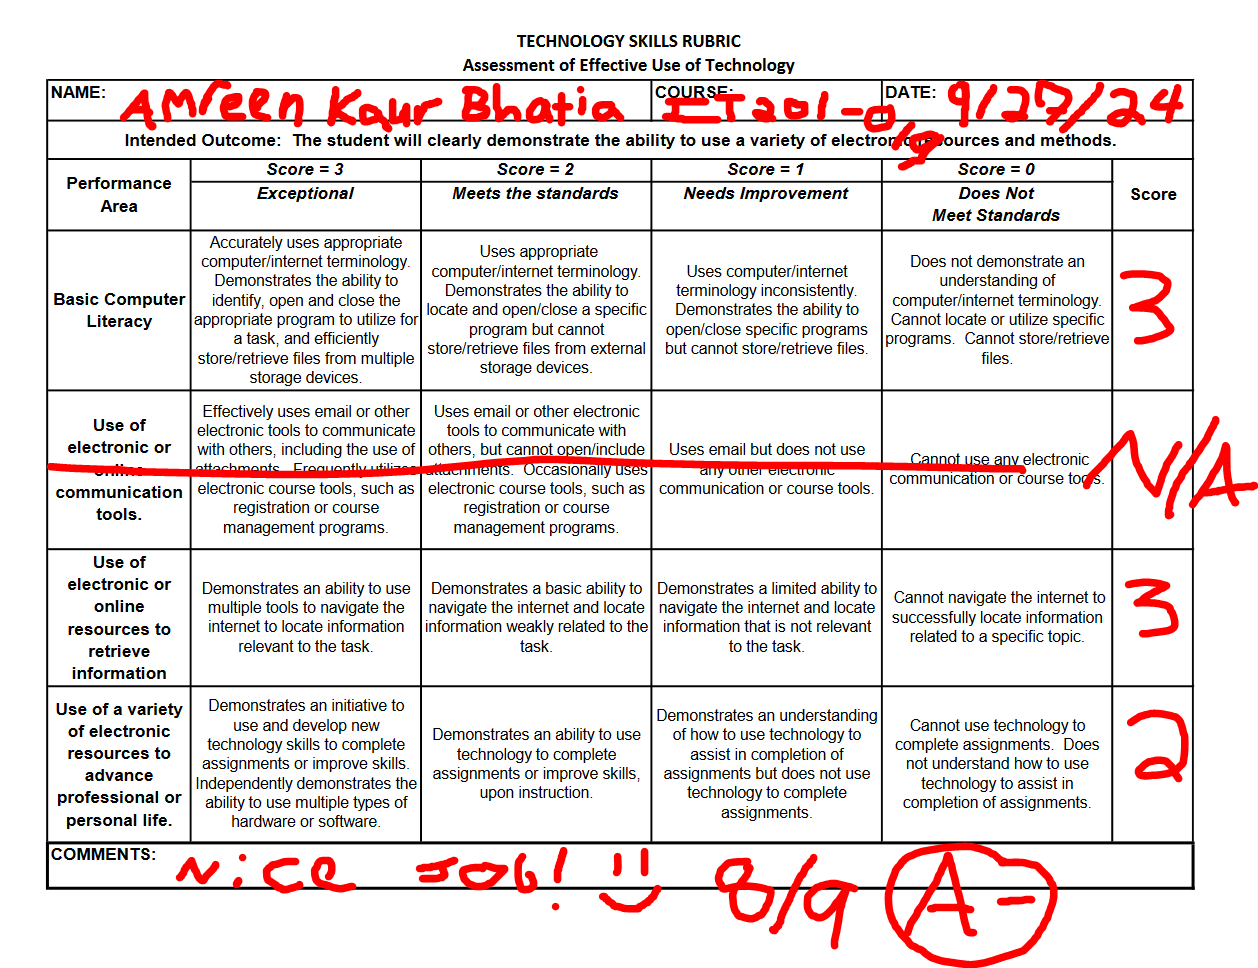 TECHNOLOGY SKILLS RUBRIC
Assessment of Effective Use of Technology
NAME: Amreen Kaur Bhatia COURSE: IT201-019 DATE: 9/27/24
Intended Outcome: The student will clearly demonstrate the ability to use a variety of electronic resources and methods.
Performance
Area
Score = 3
Exceptional
Score = 2
Meets the standards
Score = 1
Needs Improvement
Score = 0
Does Not
Meet Standards
Score
Basic Computer
Literacy
Accurately uses appropriate
computer/internet terminology.
Demonstrates the ability to
identify, open and close the
appropriate program to utilize for
a task, and efficiently
store/retrieve files from multiple
storage devices.
Uses appropriate
computer/internet terminology.
Demonstrates the ability to
locate and open/close a specific
program but cannot
store/retrieve files from external
storage devices.
Uses computer/internet
terminology inconsistently.
Demonstrates the ability to
open/close specific programs
but cannot store/retrieve files.
Does not demonstrate an
understanding of
computer/internet terminology.
Cannot locate or utilize specific
programs. Cannot store/retrieve
files.
3
Use of
electronic or
online
communication
tools.
Effectively uses email or other
electronic tools to communicate
with others, including the use of
attachments. Frequently utilizes
electronic course tools, such as
registration or course
management programs.
Uses email or other electronic
tools to communicate with
others, but cannot open/include
attachments. Occasionally uses
electronic course tools, such as
registration or course
management programs.
Uses email but does not use
any other electronic
communication or course tools.
Cannot use any electronic
communication or course tools.
N/A
Use of
electronic or
online
resources to
retrieve
information
Demonstrates an ability to use
multiple tools to navigate the
internet to locate information
relevant to the task.
Demonstrates a basic ability to
navigate the internet and locate
information weakly related to the
task.
Demonstrates a limited ability to
navigate the internet and locate
information that is not relevant
to the task.
Cannot navigate the internet to
successfully locate information
related to a specific topic.
3
Use of a variety
of electronic
resources to
advance
professional or
personal life.
Demonstrates an initiative to
use and develop new
technology skills to complete
assignments or improve skills.
Independently demonstrates the
ability to use multiple types of
hardware or software.
Demonstrates an ability to use
technology to complete
assignments or improve skills,
upon instruction.
Demonstrates an understanding
of how to use technology to
assist in completion of
assignments but does not use
technology to complete
assignments.
Cannot use technology to
complete assignments. Does
not understand how to use
technology to assist in
completion of assignments.
2
COMMENTS: Nice Job! :) 8/9 A-